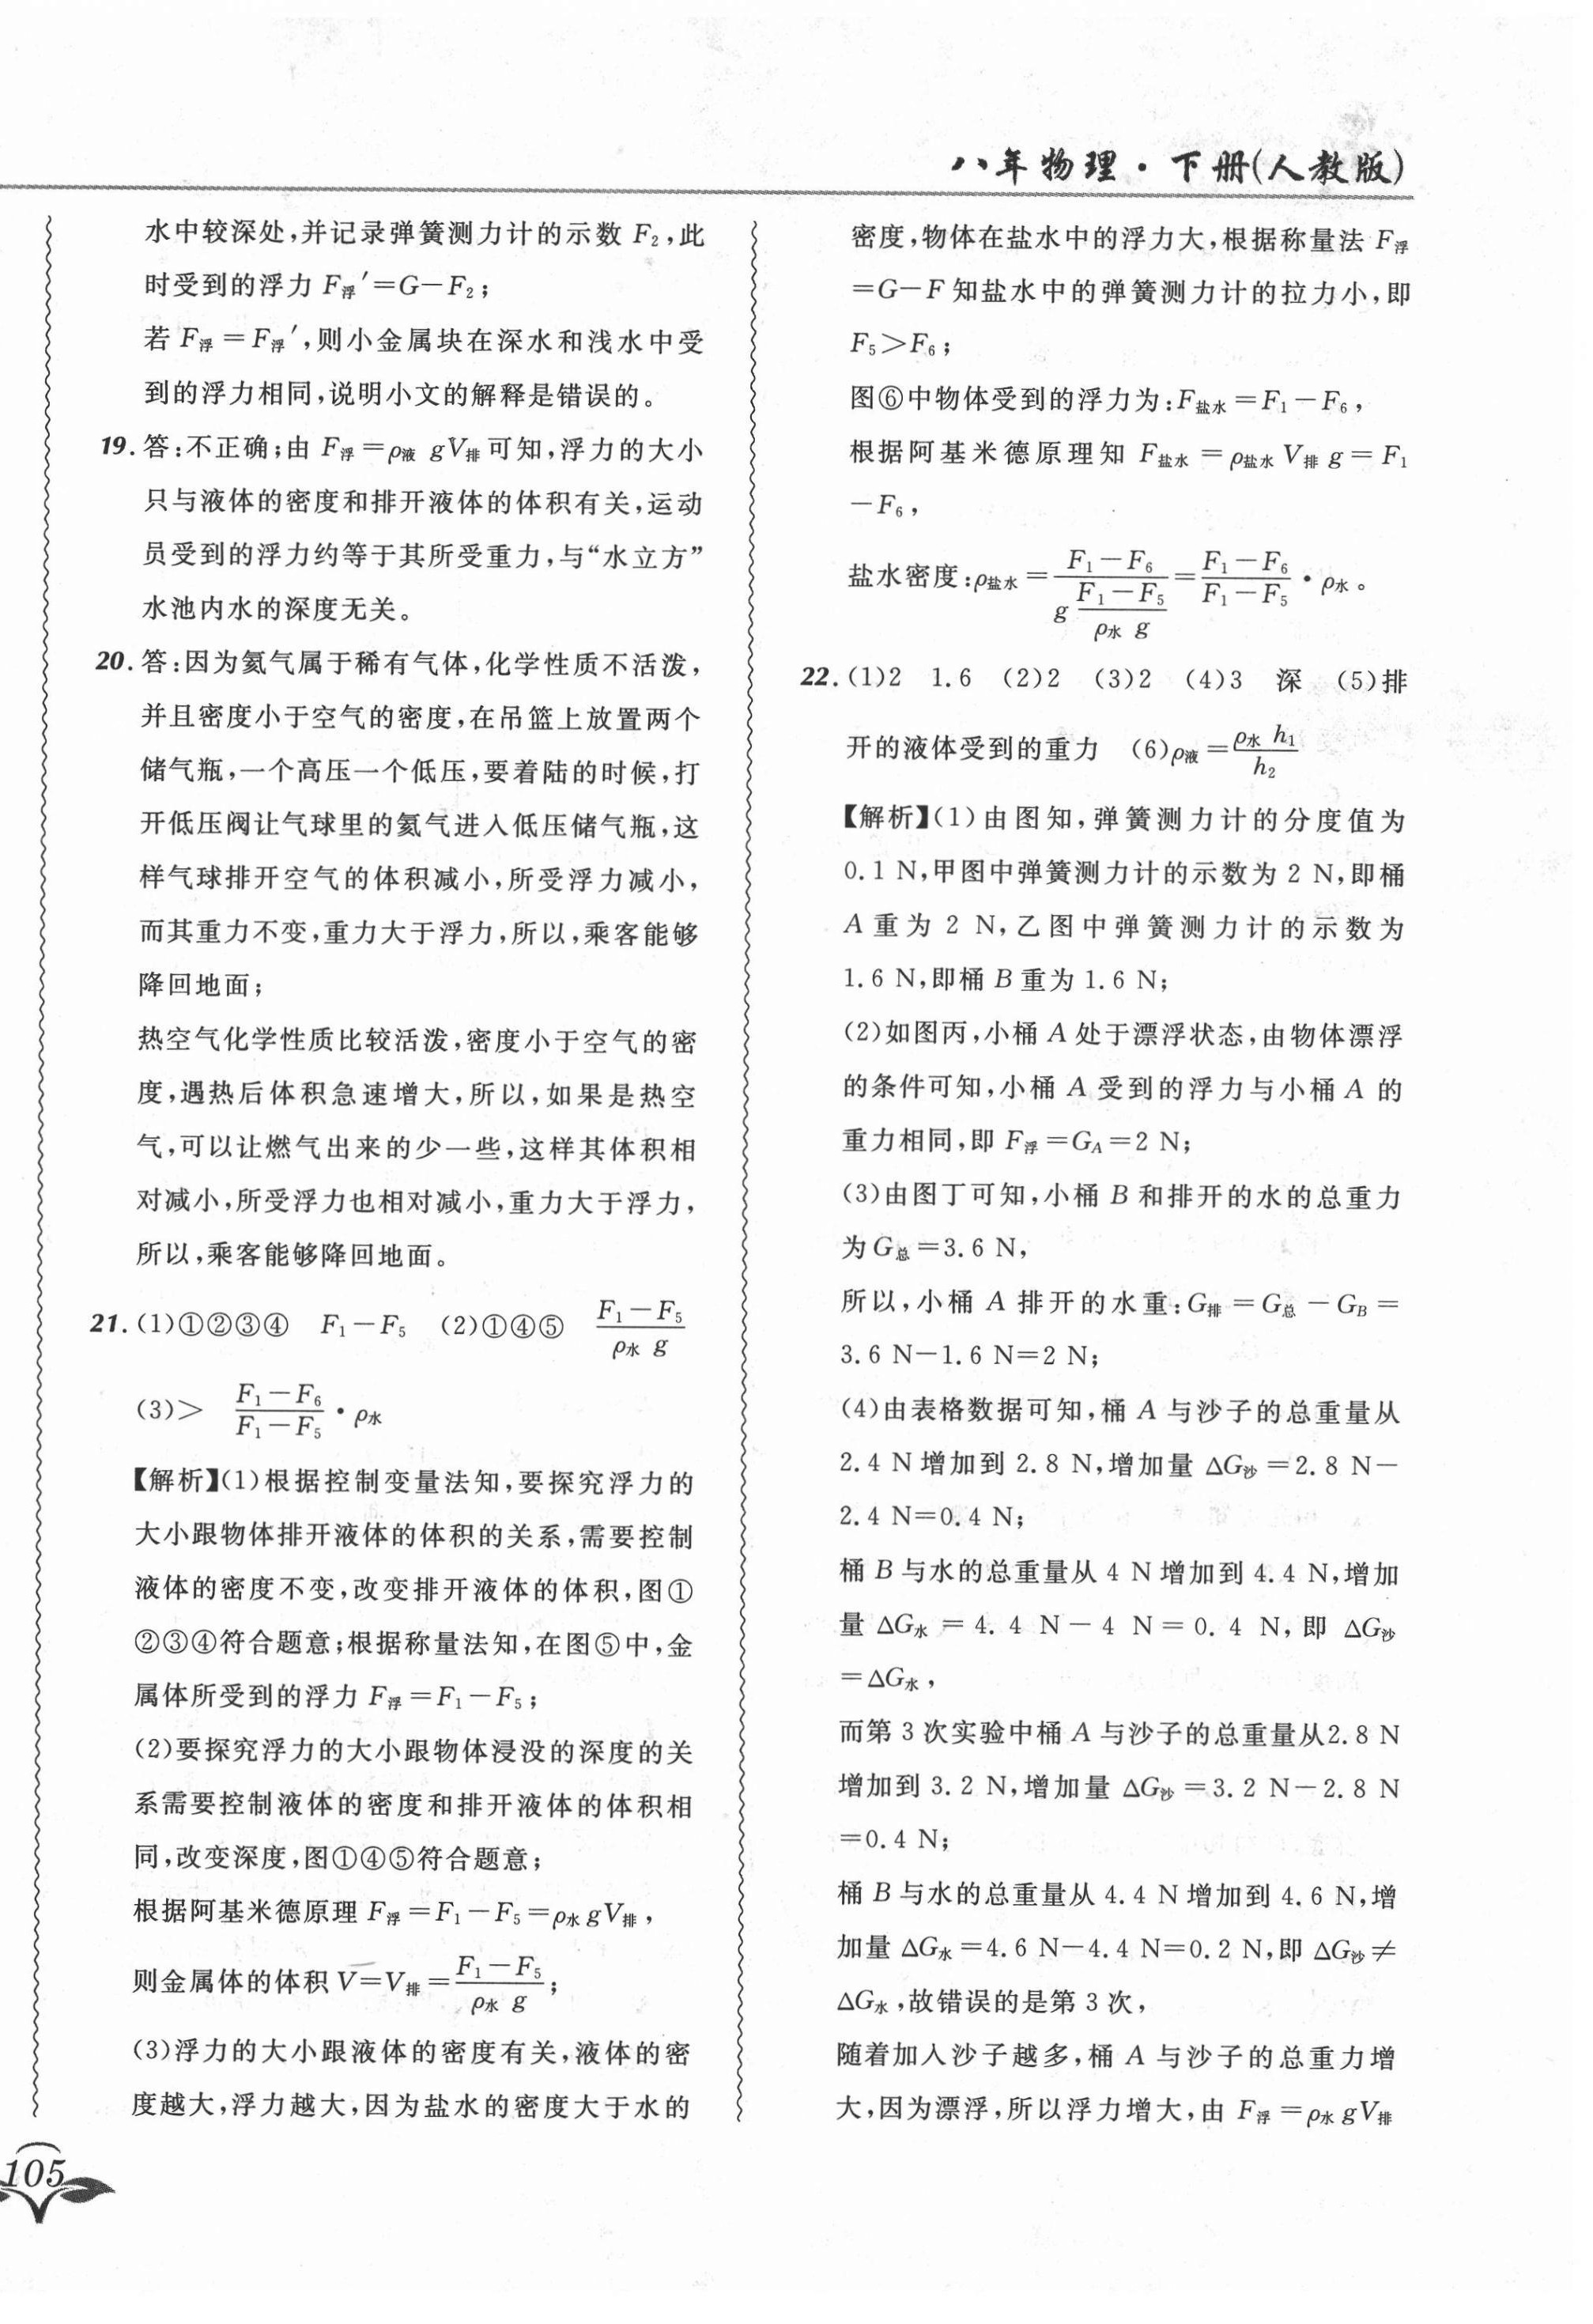 八年物理·下册(人教版)
水中较深处,并记录弹簧测力计的示数 F₂,此
时受到的浮力 F浮′=G−F₂;
若 F浮=F浮′,则小金属块在深水和浅水中受
到的浮力相同,说明小文的解释是错误的。
19.答:不正确;由 F浮=ρ液 gV排可知,浮力的大小
只与液体的密度和排开液体的体积有关,运动
员受到的浮力约等于其所受重力,与“水立方”
水池内水的深度无关。
20.答:因为氦气属于稀有气体,化学性质不活泼,
并且密度小于空气的密度,在吊篮上放置两个
储气瓶,一个高压一个低压,要着陆的时候,打
开低压阀让气球里的氦气进入低压储气瓶,这
样气球排开空气的体积减小,所受浮力减小,
而其重力不变,重力大于浮力,所以,乘客能够
降回地面;
热空气化学性质比较活泼,密度小于空气的密
度,遇热后体积急速增大,所以,如果是热空
气,可以让燃气出来的少一些,这样其体积相
对减小,所受浮力也相对减小,重力大于浮力,
所以,乘客能够降回地面。
21.(1)①②③④ F₁−F₅ (2)①④⑤ (F₁−F₅)/(ρ水 g)
(3)> (F₁−F₆)/(F₁−F₅)·ρ水
【解析】(1)根据控制变量法知,要探究浮力的
大小跟物体排开液体的体积的关系,需要控制
液体的密度不变,改变排开液体的体积,图①
②③④符合题意;根据称量法知,在图⑤中,金
属体所受到的浮力 F浮=F₁−F₅;
(2)要探究浮力的大小跟物体浸没的深度的关
系需要控制液体的密度和排开液体的体积相
同,改变深度,图①④⑤符合题意;
根据阿基米德原理 F浮=F₁−F₅=ρ水 gV排,
则金属体的体积 V=V排=(F₁−F₅)/(ρ水 g);
(3)浮力的大小跟液体的密度有关,液体的密
度越大,浮力越大,因为盐水的密度大于水的
密度,物体在盐水中的浮力大,根据称量法 F浮
=G−F 知盐水中的弹簧测力计的拉力小,即
F₅>F₆;
图⑥中物体受到的浮力为:F盐水=F₁−F₆,
根据阿基米德原理知 F盐水=ρ盐水 V排 g=F₁
−F₆,
盐水密度:ρ盐水=(F₁−F₆)/(g (F₁−F₅)/(ρ水 g))=(F₁−F₆)/(F₁−F₅)·ρ水。
22.(1)2 1.6 (2)2 (3)2 (4)3 深 (5)排
开的液体受到的重力 (6)ρ液=(ρ水 h₁)/h₂
【解析】(1)由图知,弹簧测力计的分度值为
0.1 N,甲图中弹簧测力计的示数为 2 N,即桶
A 重为 2 N,乙图中弹簧测力计的示数为
1.6 N,即桶 B 重为 1.6 N;
(2)如图丙,小桶 A 处于漂浮状态,由物体漂浮
的条件可知,小桶 A 受到的浮力与小桶 A 的
重力相同,即 F浮=G_A=2 N;
(3)由图丁可知,小桶 B 和排开的水的总重力
为 G总=3.6 N,
所以,小桶 A 排开的水重:G排=G总−G_B=
3.6 N−1.6 N=2 N;
(4)由表格数据可知,桶 A 与沙子的总重量从
2.4 N 增加到 2.8 N,增加量 ΔG沙=2.8 N−
2.4 N=0.4 N;
桶 B 与水的总重量从 4 N 增加到 4.4 N,增加
量 ΔG水=4.4 N−4 N=0.4 N,即 ΔG沙
=ΔG水,
而第 3 次实验中桶 A 与沙子的总重量从2.8 N
增加到 3.2 N,增加量 ΔG沙=3.2 N−2.8 N
=0.4 N;
桶 B 与水的总重量从 4.4 N 增加到 4.6 N,增
加量 ΔG水=4.6 N−4.4 N=0.2 N,即 ΔG沙≠
ΔG水,故错误的是第 3 次,
随着加入沙子越多,桶 A 与沙子的总重力增
大,因为漂浮,所以浮力增大,由 F浮=ρ水 gV排
105